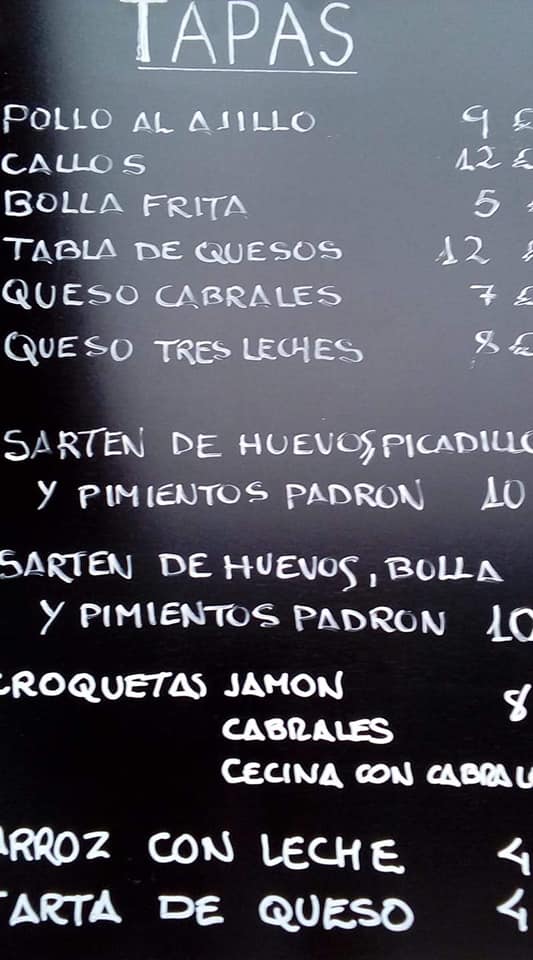 TAPAS
POLLO AL AJILLO 9 £
CALLOS 12 £
BOLLA FRITA 5
TABLA DE QUESOS 12
QUESO CABRALES 7 £
QUESO TRES LECHES 8 £
SARTEN DE HUEVOS, PICADILLO
Y PIMIENTOS PADRON 10
SARTEN DE HUEVOS, BOLLA
Y PIMIENTOS PADRON 10
CROQUETAS JAMON 8
CABRALES
CECINA CON CABRAL
ARROZ CON LECHE 4
TARTA DE QUESO 4